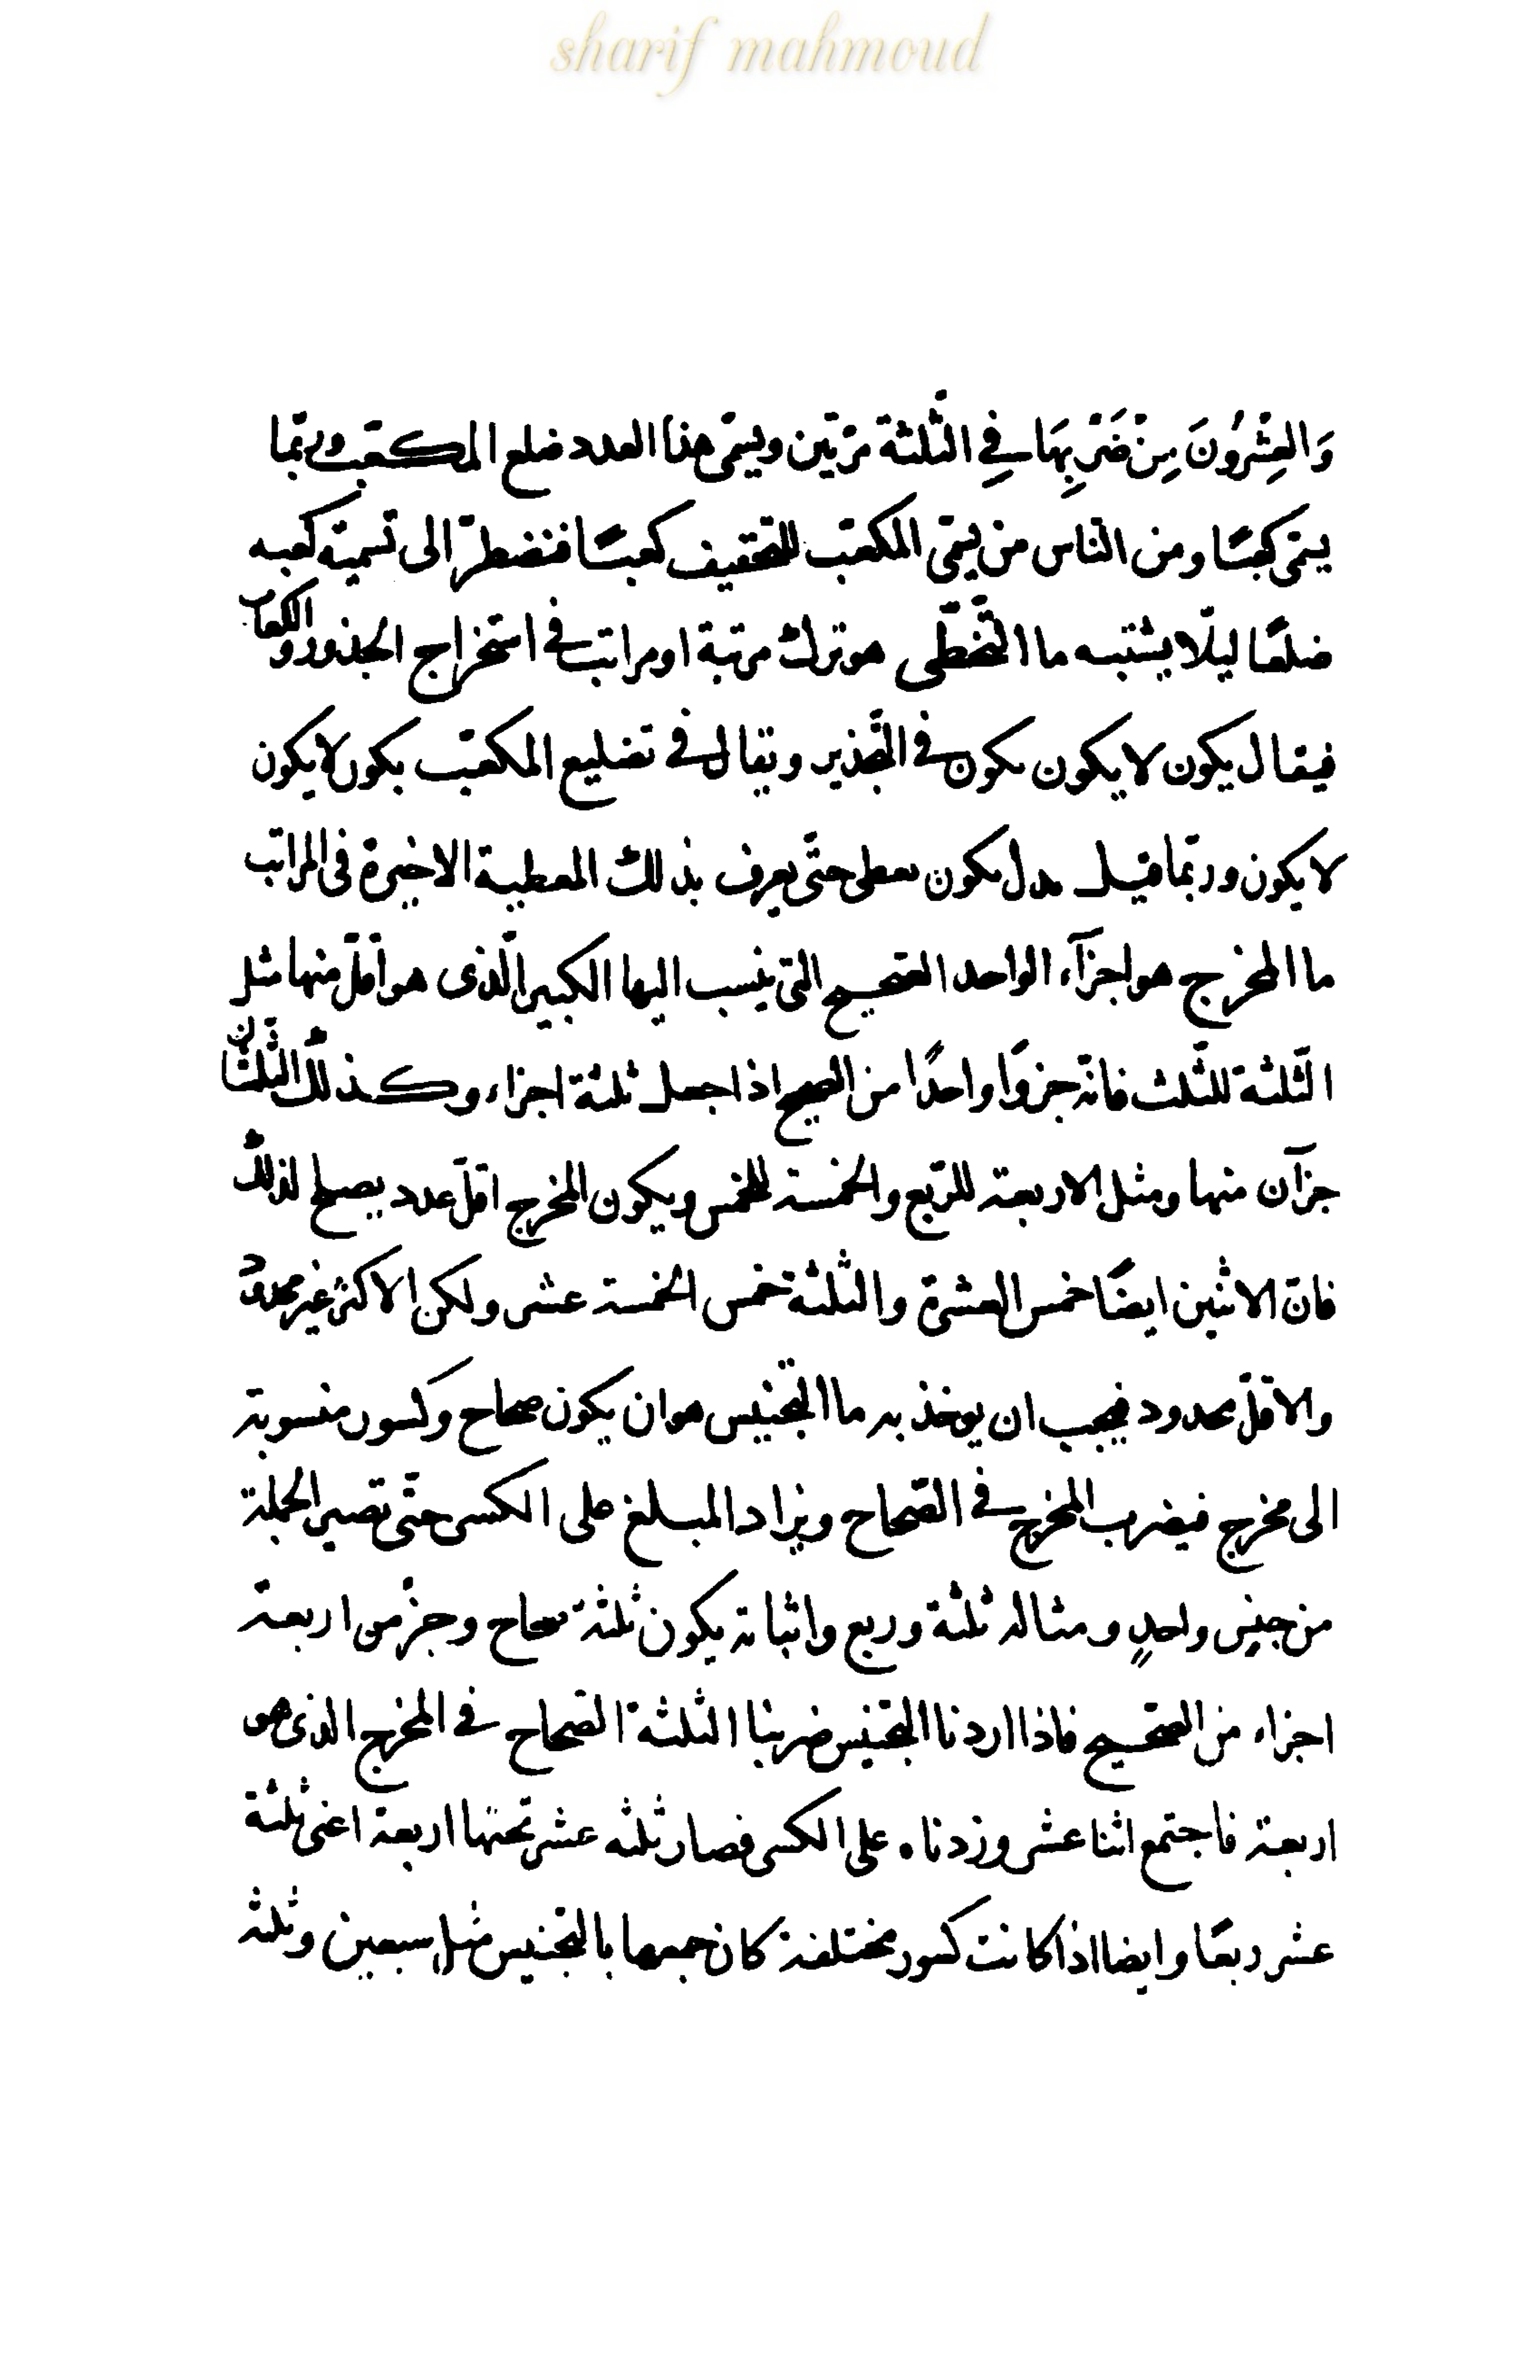 sharif mahmoud
وَالعِشْرُونَ مِنْ ضَرْبِهَا فِي الثّلثة مرّتين ويسمّى هذا العدد ضلع المكعّب وربّما
يسمّى كعبًا ومن النّاس من يسمّى المكعّب للتخفيف كعبًا فنضطرّ الى تسمية كعبه
ضلعًا ليلّا يشتبه ما التّخطّى هو ترك مرتبة او مراتب فى استخراج الجذور والكعاب
فيقال يكون لا يكون يكون فى التّجذير ويقال فى تضليع المكعّب يكون لا يكون
لا يكون وربّما قيل بدل يكون يعطى حتّى يعرف بذلك المعطية الاخيرة فى المراتب
ما المخرج هو اجزآء الواحد الصّحيح التى ينسب اليها الكبير الّذى هو اقلّ منها مثل
الثّلثة للثّلث فانّه جزوًا واحدًا من الصحيح اذا جعل ثلثة اجزاء وكذلك الثّلثان
جزآن منها ومثل الاربعة للرّبع والخمسة للخمس ويكون المخرج اقلّ عدد يصلح لذلك
فانّ الاثنين ايضًا خمس العشرة والثّلثة خمس الخمسة عشر ولكن الاكثر غير محدود
والاقلّ محدود فيجب ان يوخذ به ما التّجنيس هو ان يكون صحاح وكسور منسوبة
الى مخرج فيضرب المخرج فى الصّحاح ويزاد المبلغ على الكسر حتّى تصير الجملة
من جنسٍ واحدٍ ومثاله ثلثة وربع واثباته يكون ثلثة صحاح وجزء من اربعة
اجزاء من الصّحيح فاذا اردنا التّجنيس ضربنا الثلثة الصّحاح فى المخرج الذى هو
اربعة فاجتمع اثنا عشر وزدناه على الكسر فصار ثلثه عشر تحتها اربعة اعنى ثلثة
عشر ربعًا وايضا اذا كانت كسور مختلفة كان جمعها بالتّجنيس مثل سبعين وثلثه